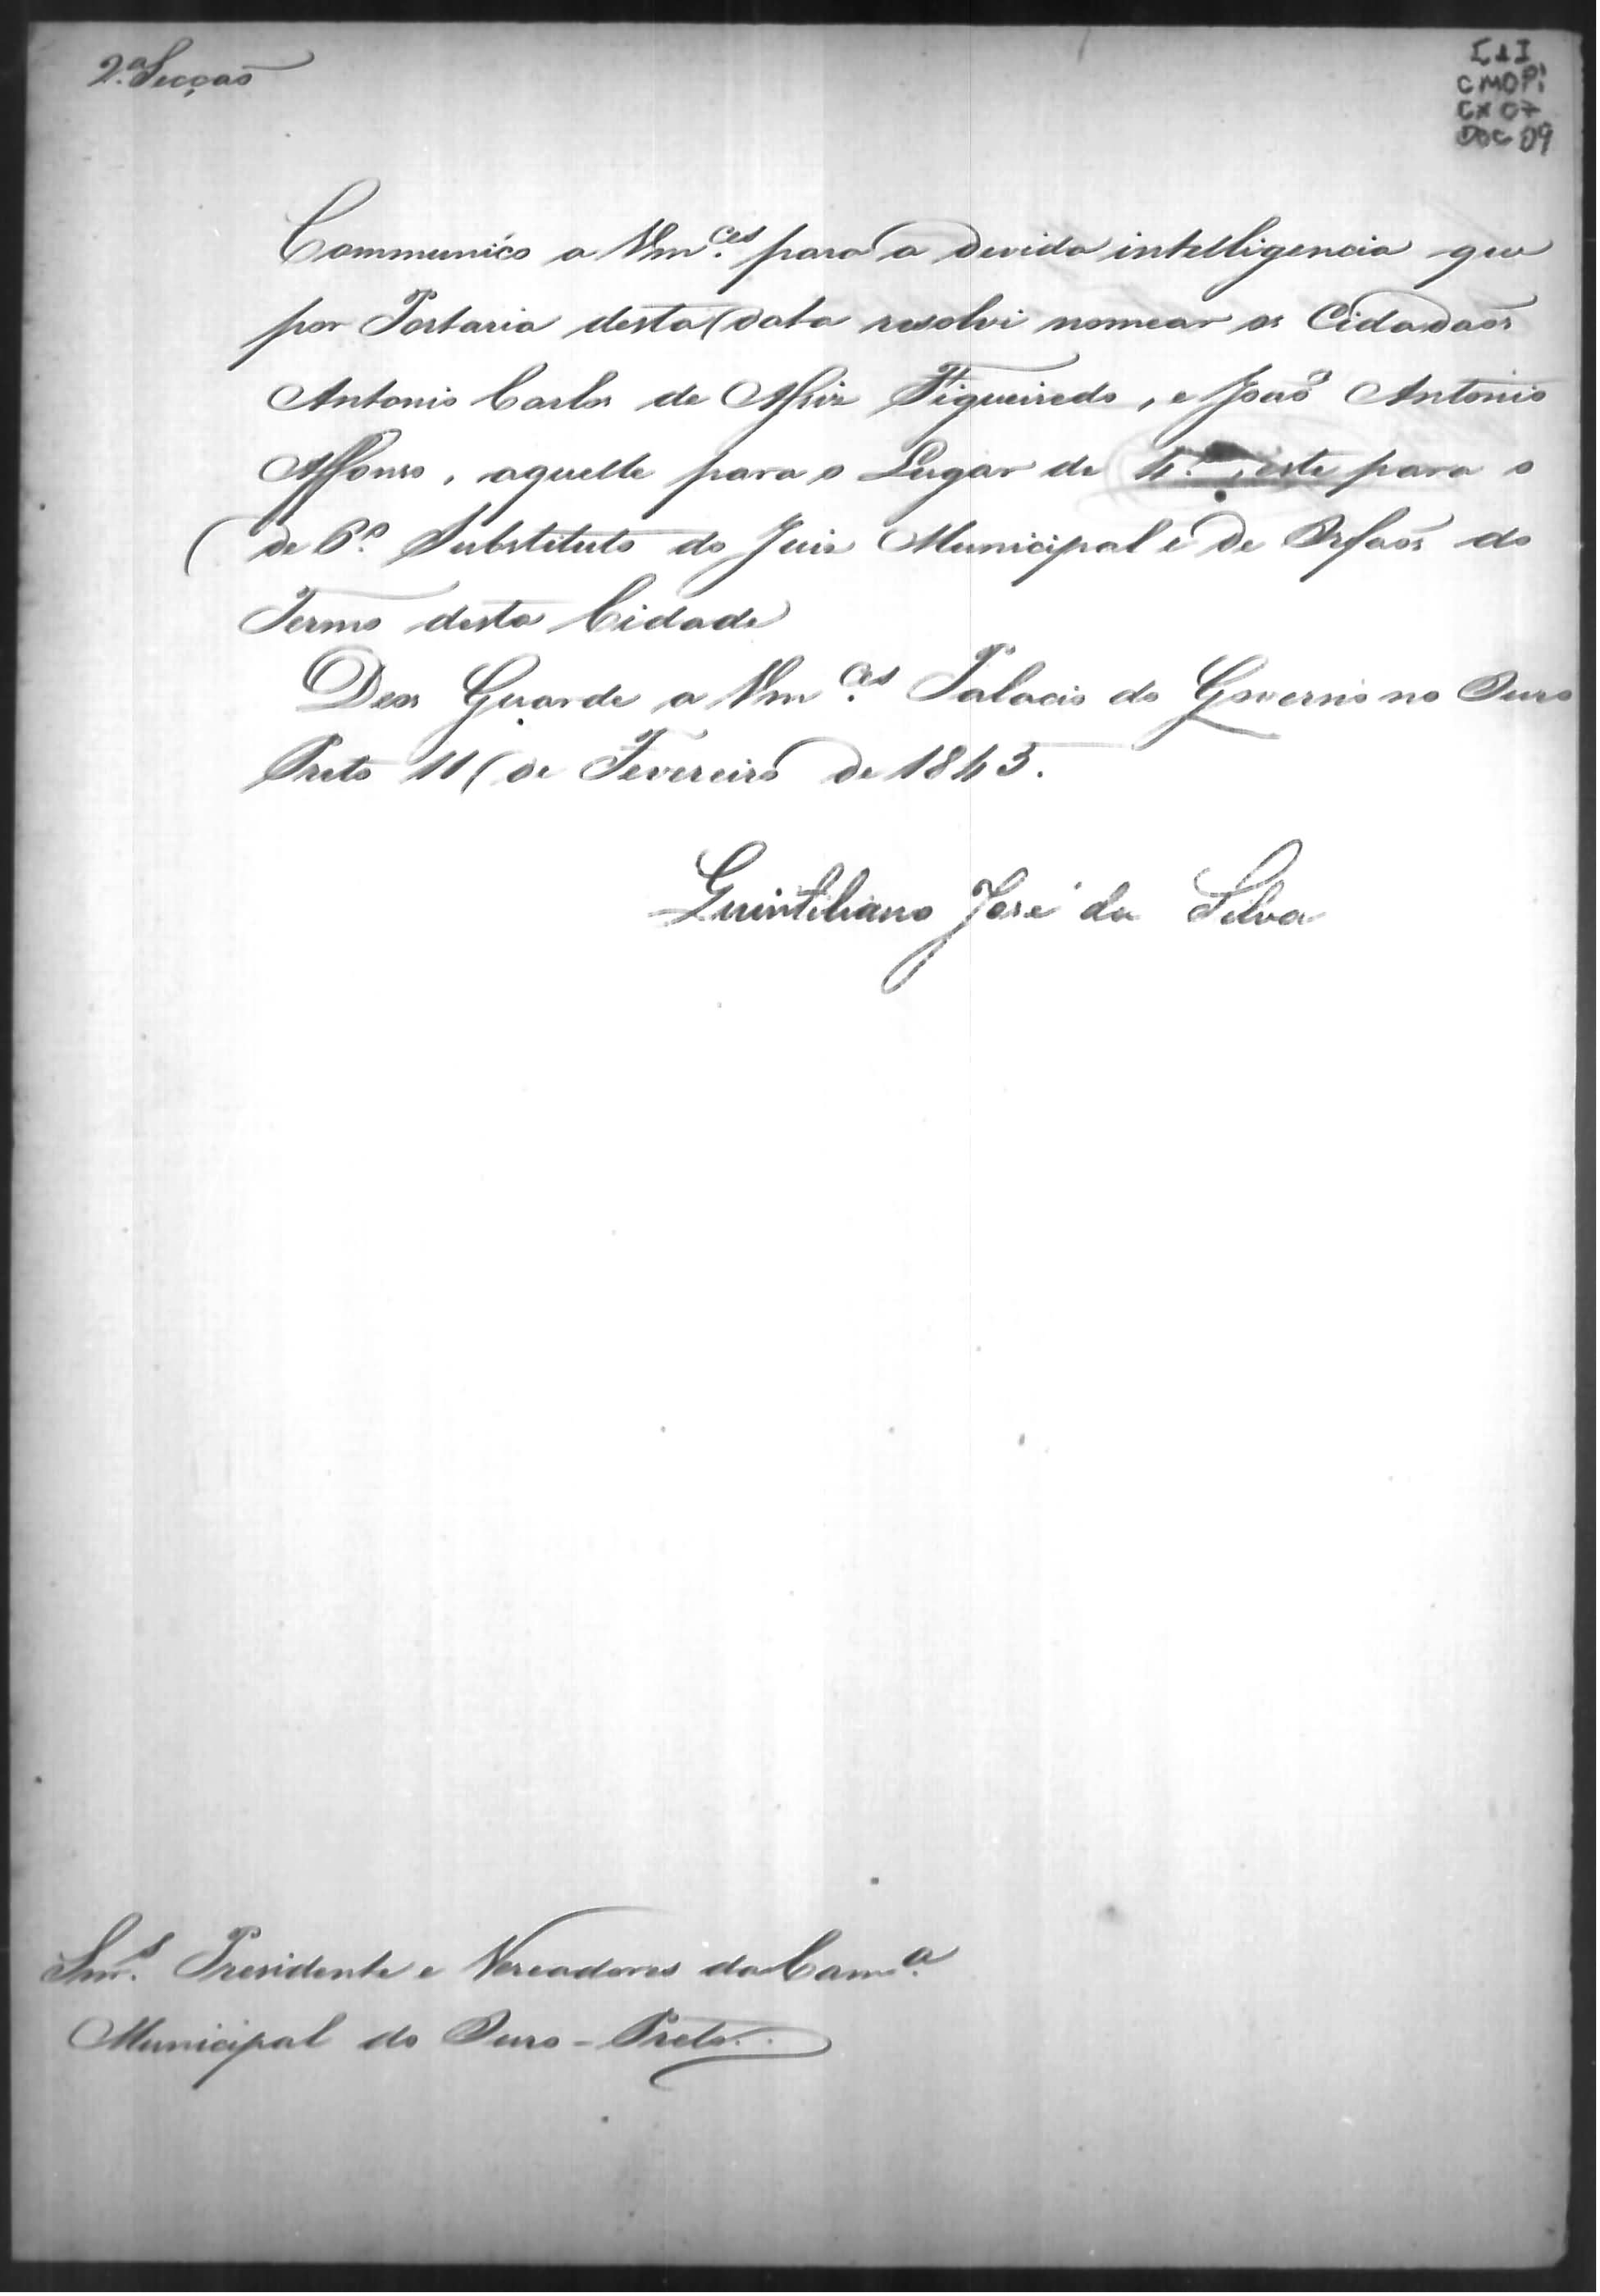 2.ª Secçaõ
I&I
CMOPi
CX 07
DOC 09
Communico a Vm.ces para a devida intelligencia que
por Portaria desta data resolvi nomear os Cidadaõs
Antonio Carlos de Figueiredo, e Joaõ Antonio
Affonso, aquelle para o Lugar de 4.º, este para o
de 6.º Substituto do Juiz Municipal e de Orfaõs do
Termo desta Cidade
Deos Guarde a Vm.ces Palacio do Governo no Ouro
Preto 11 de Fevereiro de 1843.
Quintiliano José da Silva
Snr.s Presidente e Vereadores da Cam.ª
Municipal do Ouro-Preto.